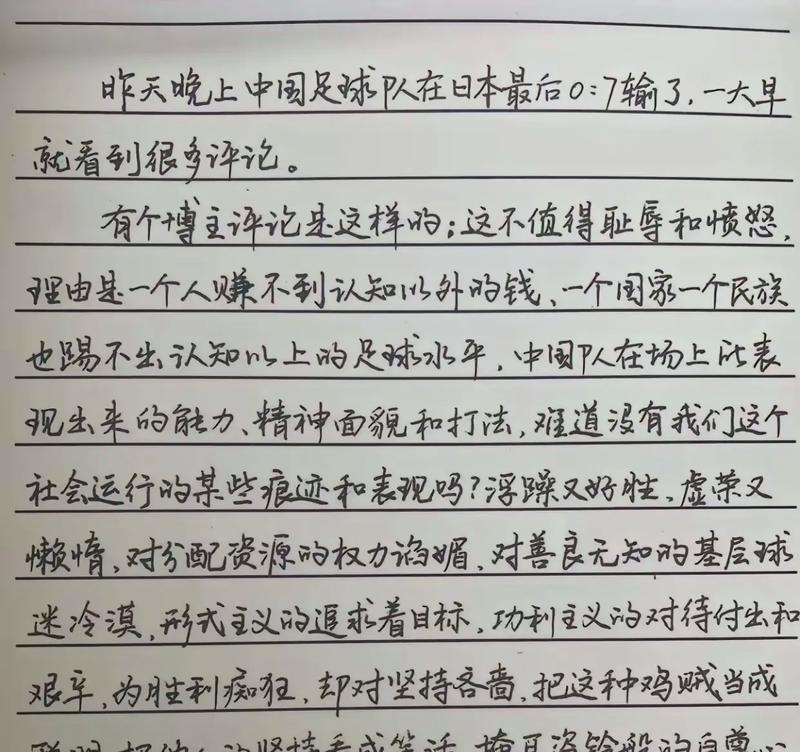 昨天晚上中国足球队在日本最后0:7输了,一大早
就看到很多评论。
有个博主评论是这样的;这不值得耻辱和愤怒,
理由是一个人赚不到认知以外的钱、一个国家一个民族
也踢不出认知以上的足球水平,中国队在场上所表
现出来的能力、精神面貌和打法,难道没有我们这个
社会运行的某些痕迹和表现吗?浮躁又好胜、虚荣又
懒惰,对分配资源的权力谄媚、对善良无知的基层球
迷冷漠,形式主义的追求着目标、功利主义的对待付出和
艰辛,为胜利痴狂、却对坚持吝啬,把这种鸡贼当成